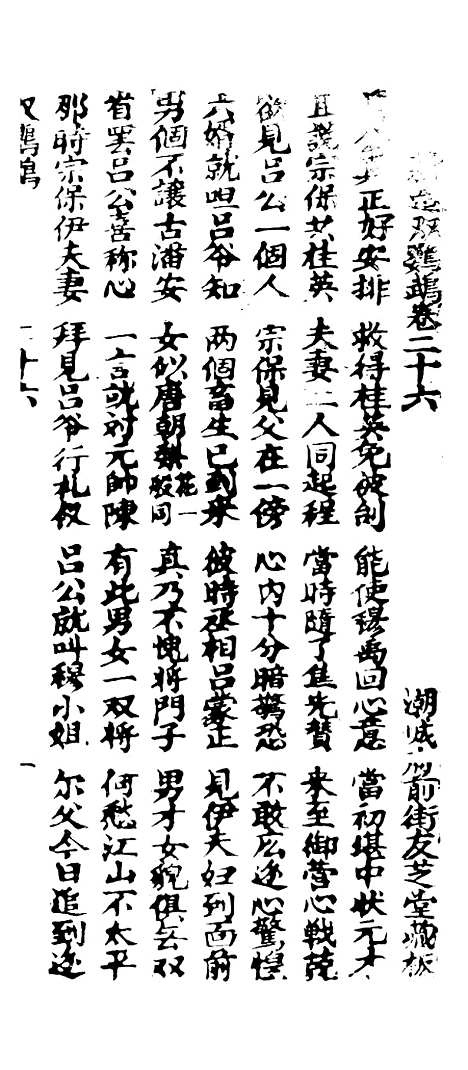 雙鸚鵡卷二十六 潮城府前街友芝堂藏板
正好安排 救得桂英免被刮 能使穆禹回心意 當初堪中狀元才
且說宗保共桂英 夫妻二人同起程 當時隨了焦先贊 來至御营心戰兢
欲見吕公一個人 宗保見父在一傍 心内十分暗驚恐 不敢広追心驚惶
六婿就呾吕爷知 两個畜生已到来 彼時丞相吕蒙正 見伊夫妇到面前
男個不讓古潘安 女似唐朝樊花一般同 真乃不愧将門子 男才女貌俱無双
省罢吕公喜称心 一言就对元帥陳 有此男女一双将 何愁江山不太平
那時宗保伊夫妻 拜見吕爷行礼叙 吕公就叫穆小姐 尔父今日追到追
双鸚鵡 二十六 一